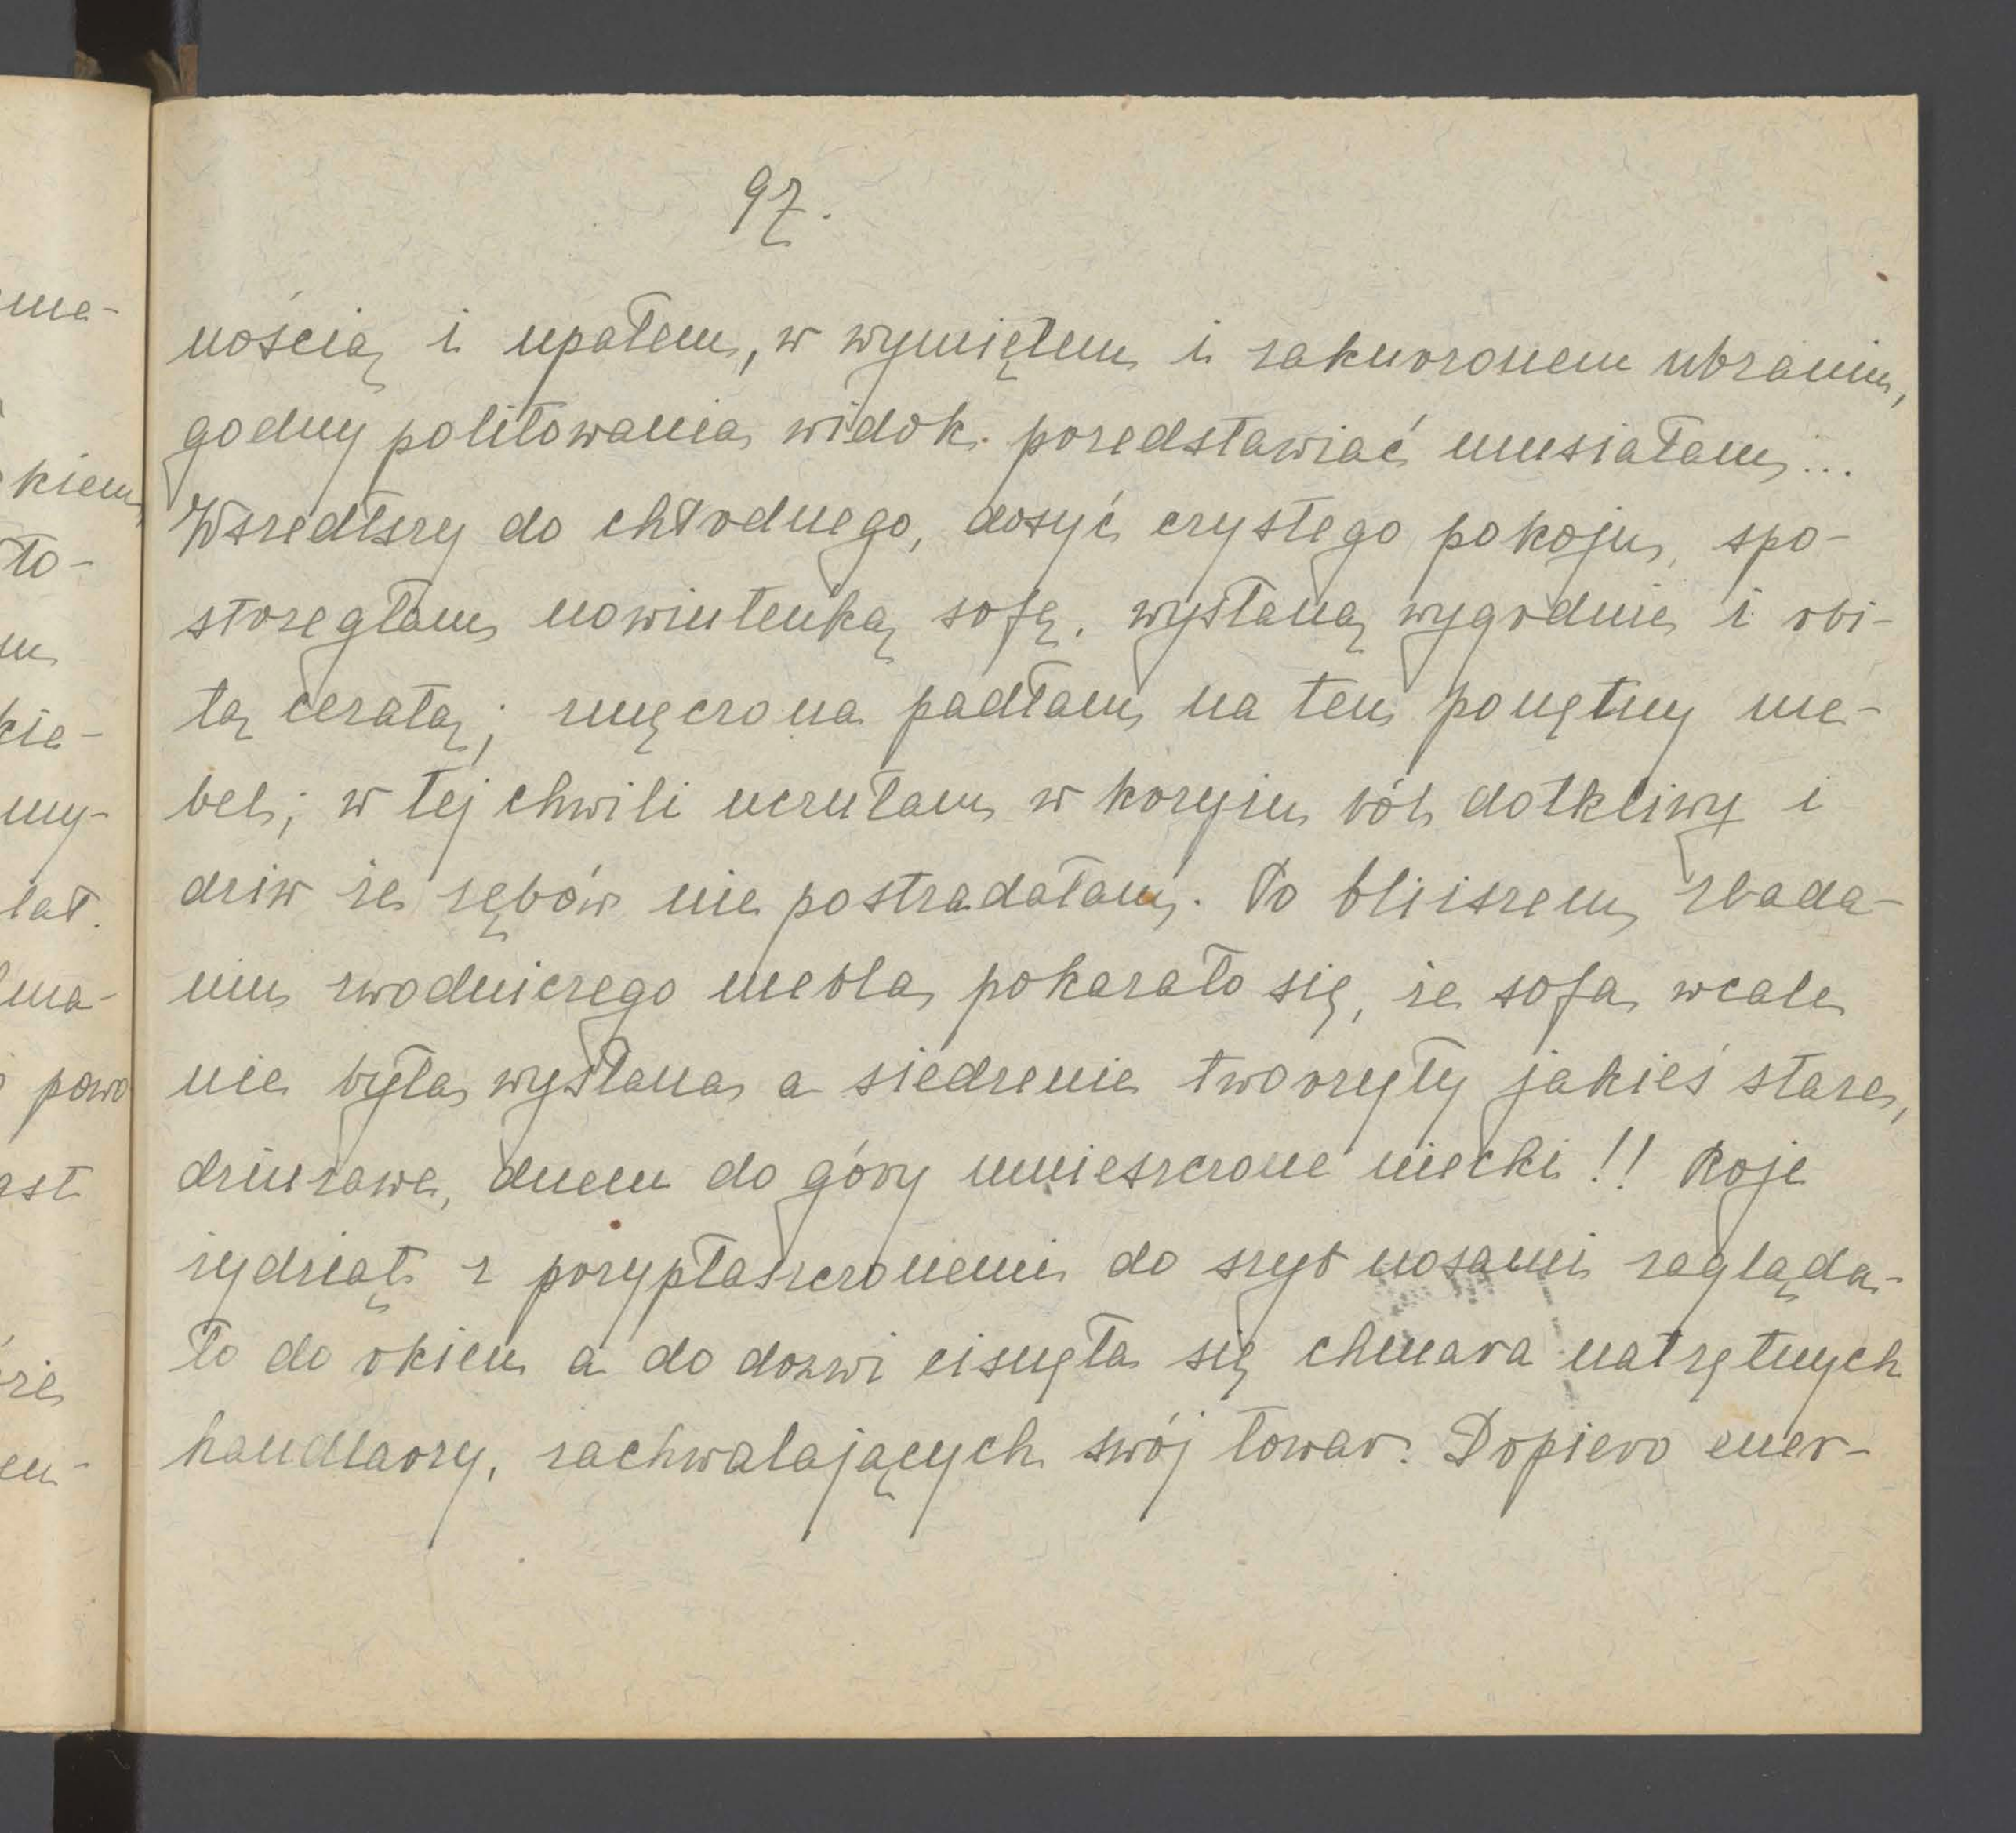 97.
nością i upałem, w wymiętem i zakurzonem ubraniu,
godny politowania widok przedstawiać musiałam...
Wszedłszy do chłodnego, dosyć czystego pokoju, spo-
strzegłam nowiuteńką sofę, wysłaną wygodnie i obi-
tą ceratą; zmęczona padłam na ten ponętny me-
bel; w tej chwili uczułam w krzyżu ból dotkliwy i
dziw że zębów nie postradałam. Po bliższem zbada-
niu zwodniczego mebla pokazało się, że sofa wcale
nie była wysłana a siedzenie tworzyły jakieś stare,
dziurawe, dnem do góry umieszczone niecki!! Roje
żydziąt z przypłaszczonemi do szyb nosami zagląda-
ło do okien a do drzwi cisnęła się chmara natrętnych
handlarzy, zachwalających swój towar. Dopiero ener-
me-
kiem,
ło-
m
kie-
my-
lat.
ma-
powo
ast
rze
en-